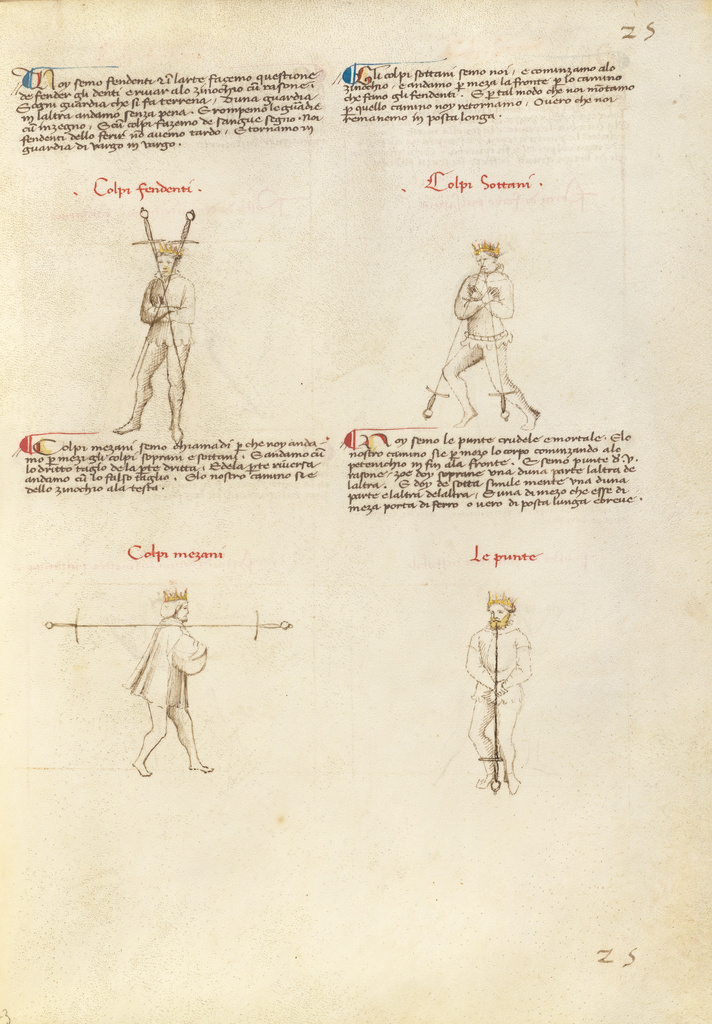 25
Noy semo fendenti e in larte facemo questione
de fender gli denti e rivar alo zinochio cum rasone.
E ogni guardia che si fa terrena, d'una guardia
in laltra andamo senza pena. E rompemo le guardie
cum inzegno, E cum colpi fazemo de sangue segno. Noi
fendenti dello ferir non avemo tardo, E tornamo in
guardia di vargo in vargo.
. Colpi fendenti .
Gli colpi sottani semo noi, e cominzamo alo
zinochio, e andamo per meza la fronte per lo camino
che fano gli fendenti. E per tal modo che noi montamo
per quello camino noy retornamo, Overo che noi
remanemo in posta longa.
. Colpi Sottani .
Colpi mezani semo chiamadi per che noy anda-
mo per mezi gli colpi soprani e sottani. E andamo cum
lo dritto taglio de la parte dritta, E dela parte riversa
andamo cum lo falso taglio. E lo nostro camino si e
dello zinochio ala testa.
Colpi mezani
Noy semo le punte crudele e mortale. E lo
nostro camino sie per mezo lo corpo cominzando alo
petenichio in fin ala fronte. E semo punte d. V.
rasone, zoe doy soprane una d'una parte laltra de
laltra. E doy de sotta similemente una d'una
parte e laltra de laltra, E una di mezo che esse di
meza porta di ferro o vero di posta lunga e breve.
Le punte
25